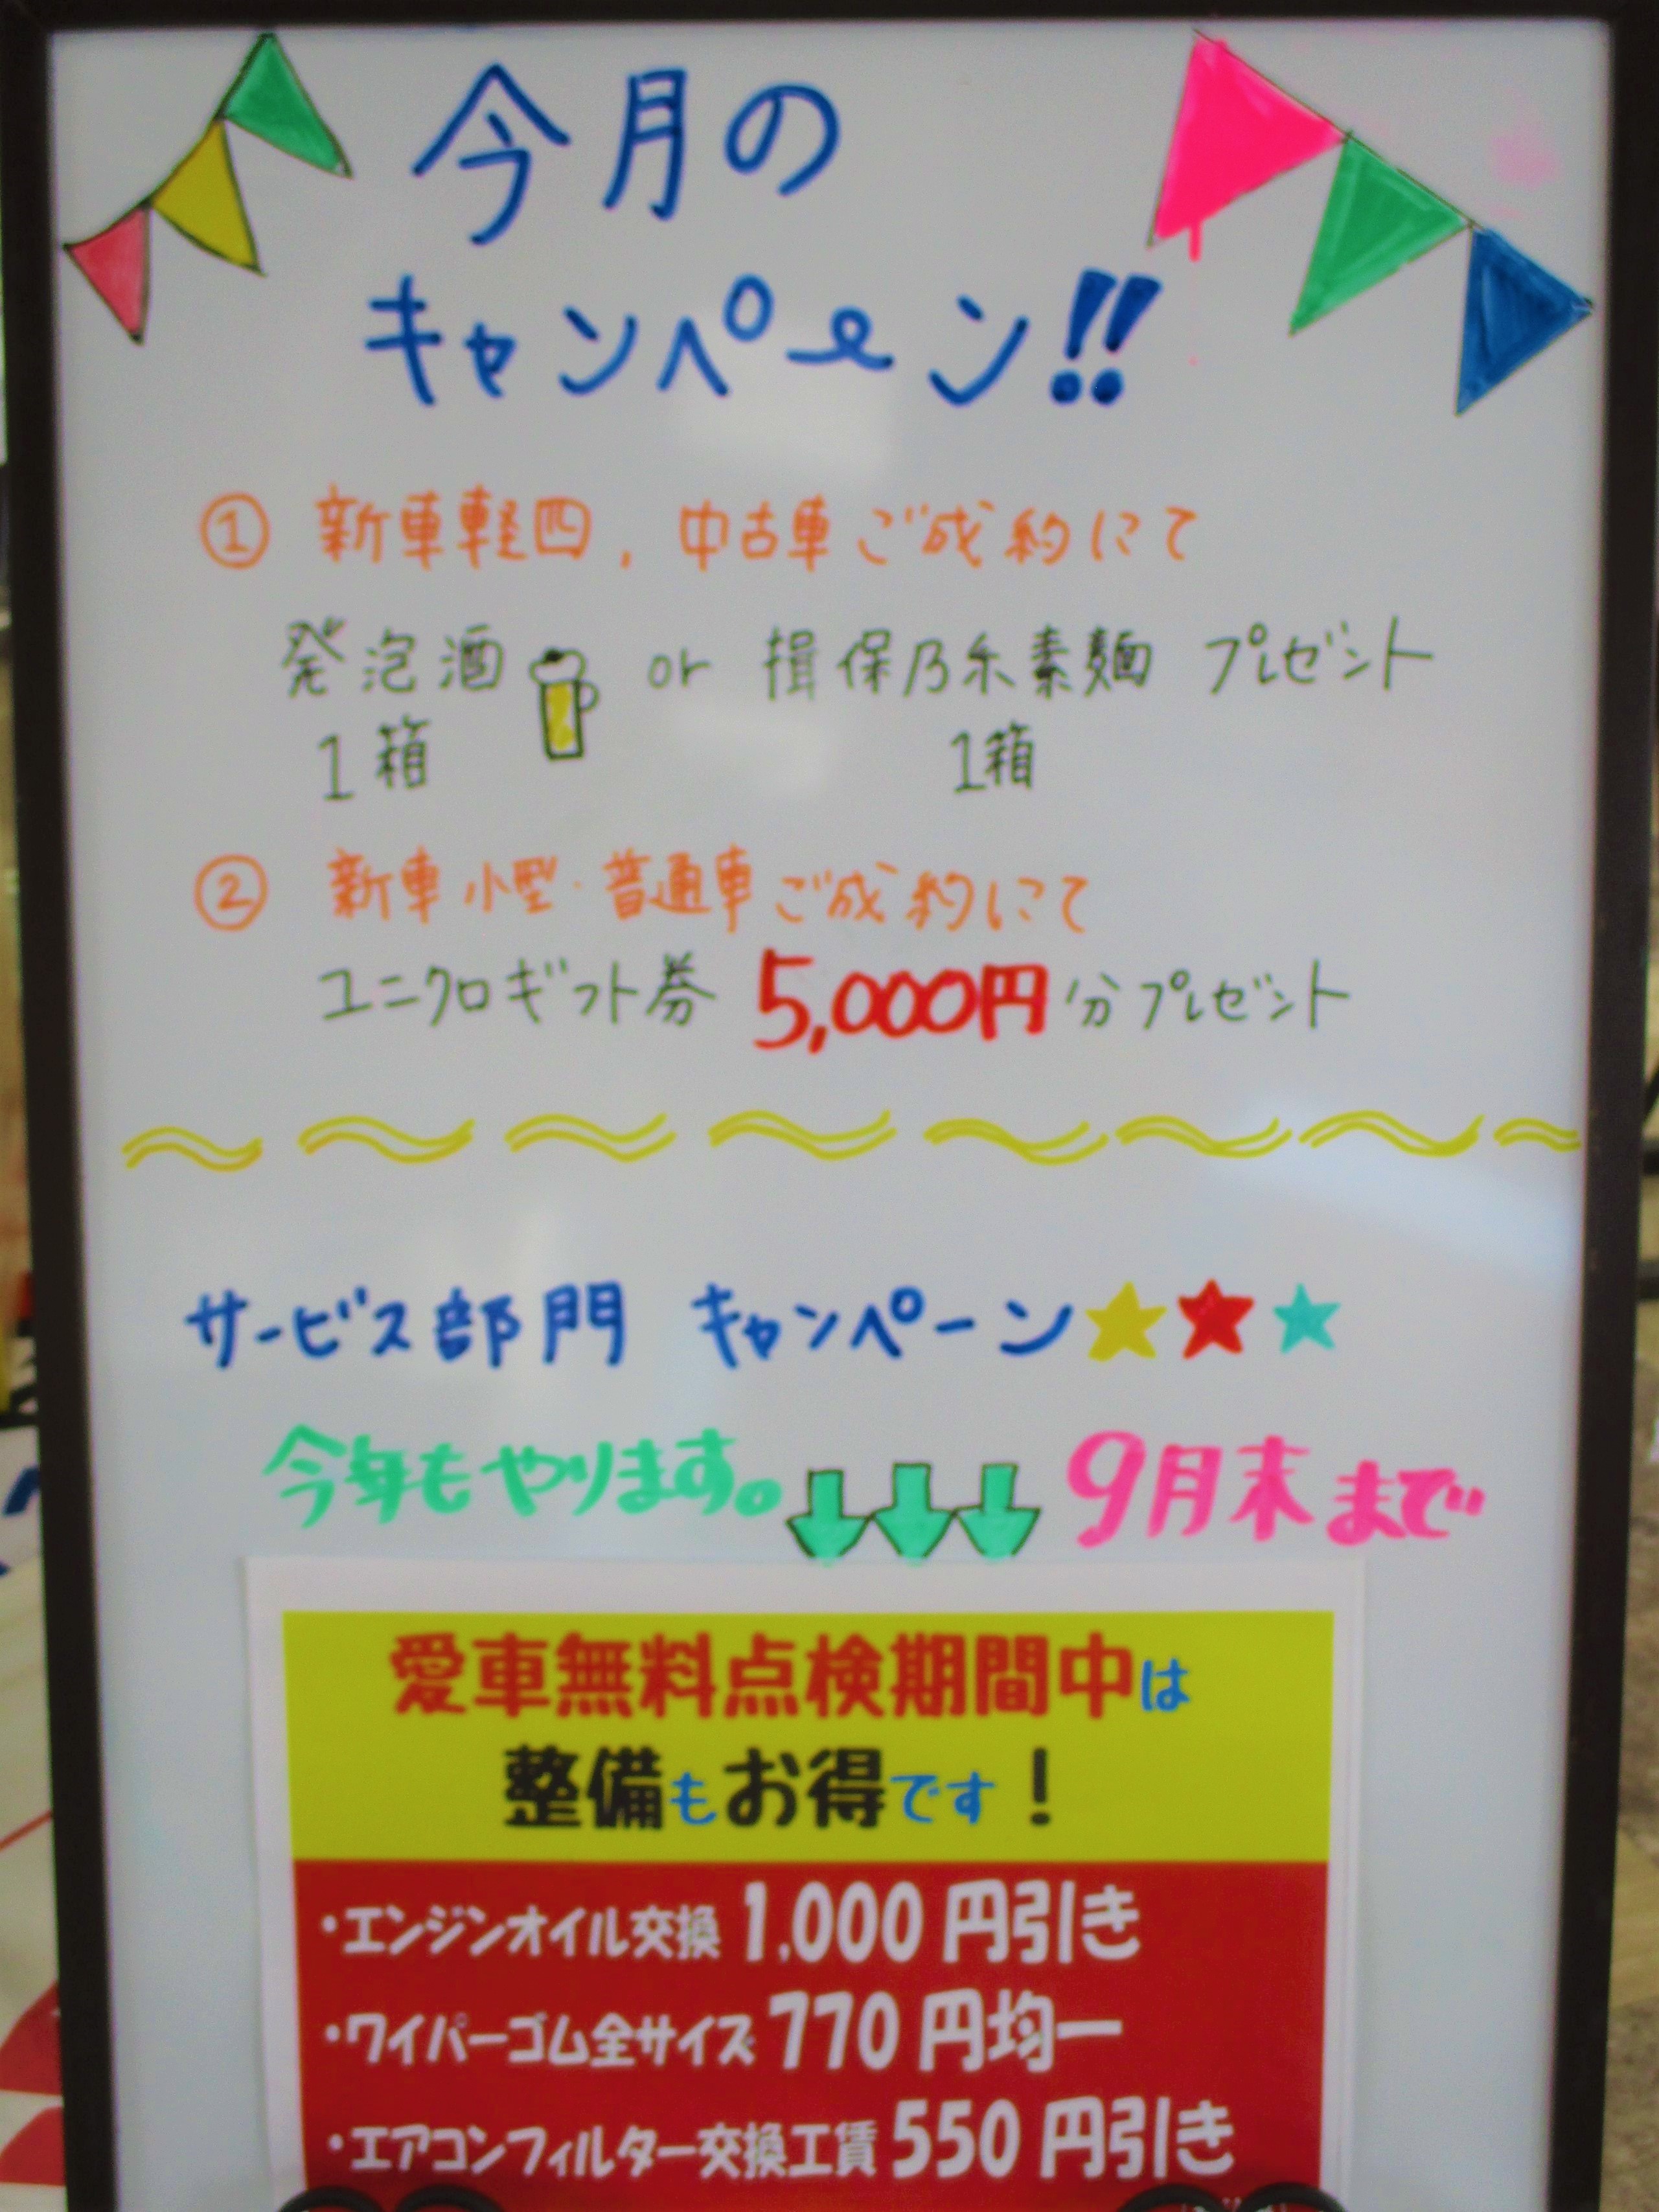 今月の
キャンペーン!!
① 新車軽四, 中古車ご成約にて
発泡酒 or 揖保乃糸素麺 プレゼント
1箱 1箱
② 新車小型・普通車ご成約にて
ユニクロギフト券 5,000円分プレゼント
サービス部門 キャンペーン
今年もやります。 9月末まで
愛車無料点検期間中は
整備もお得です!
・エンジンオイル交換 1,000円引き
・ワイパーゴム全サイズ 770円均一
・エアコンフィルター交換工賃 550円引き